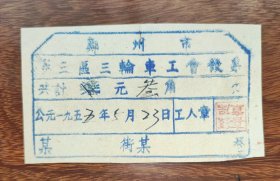 郑州市
第三區三輪車工會收费
共計 元叁角
公元一九五5年5月23日工人章
某街某